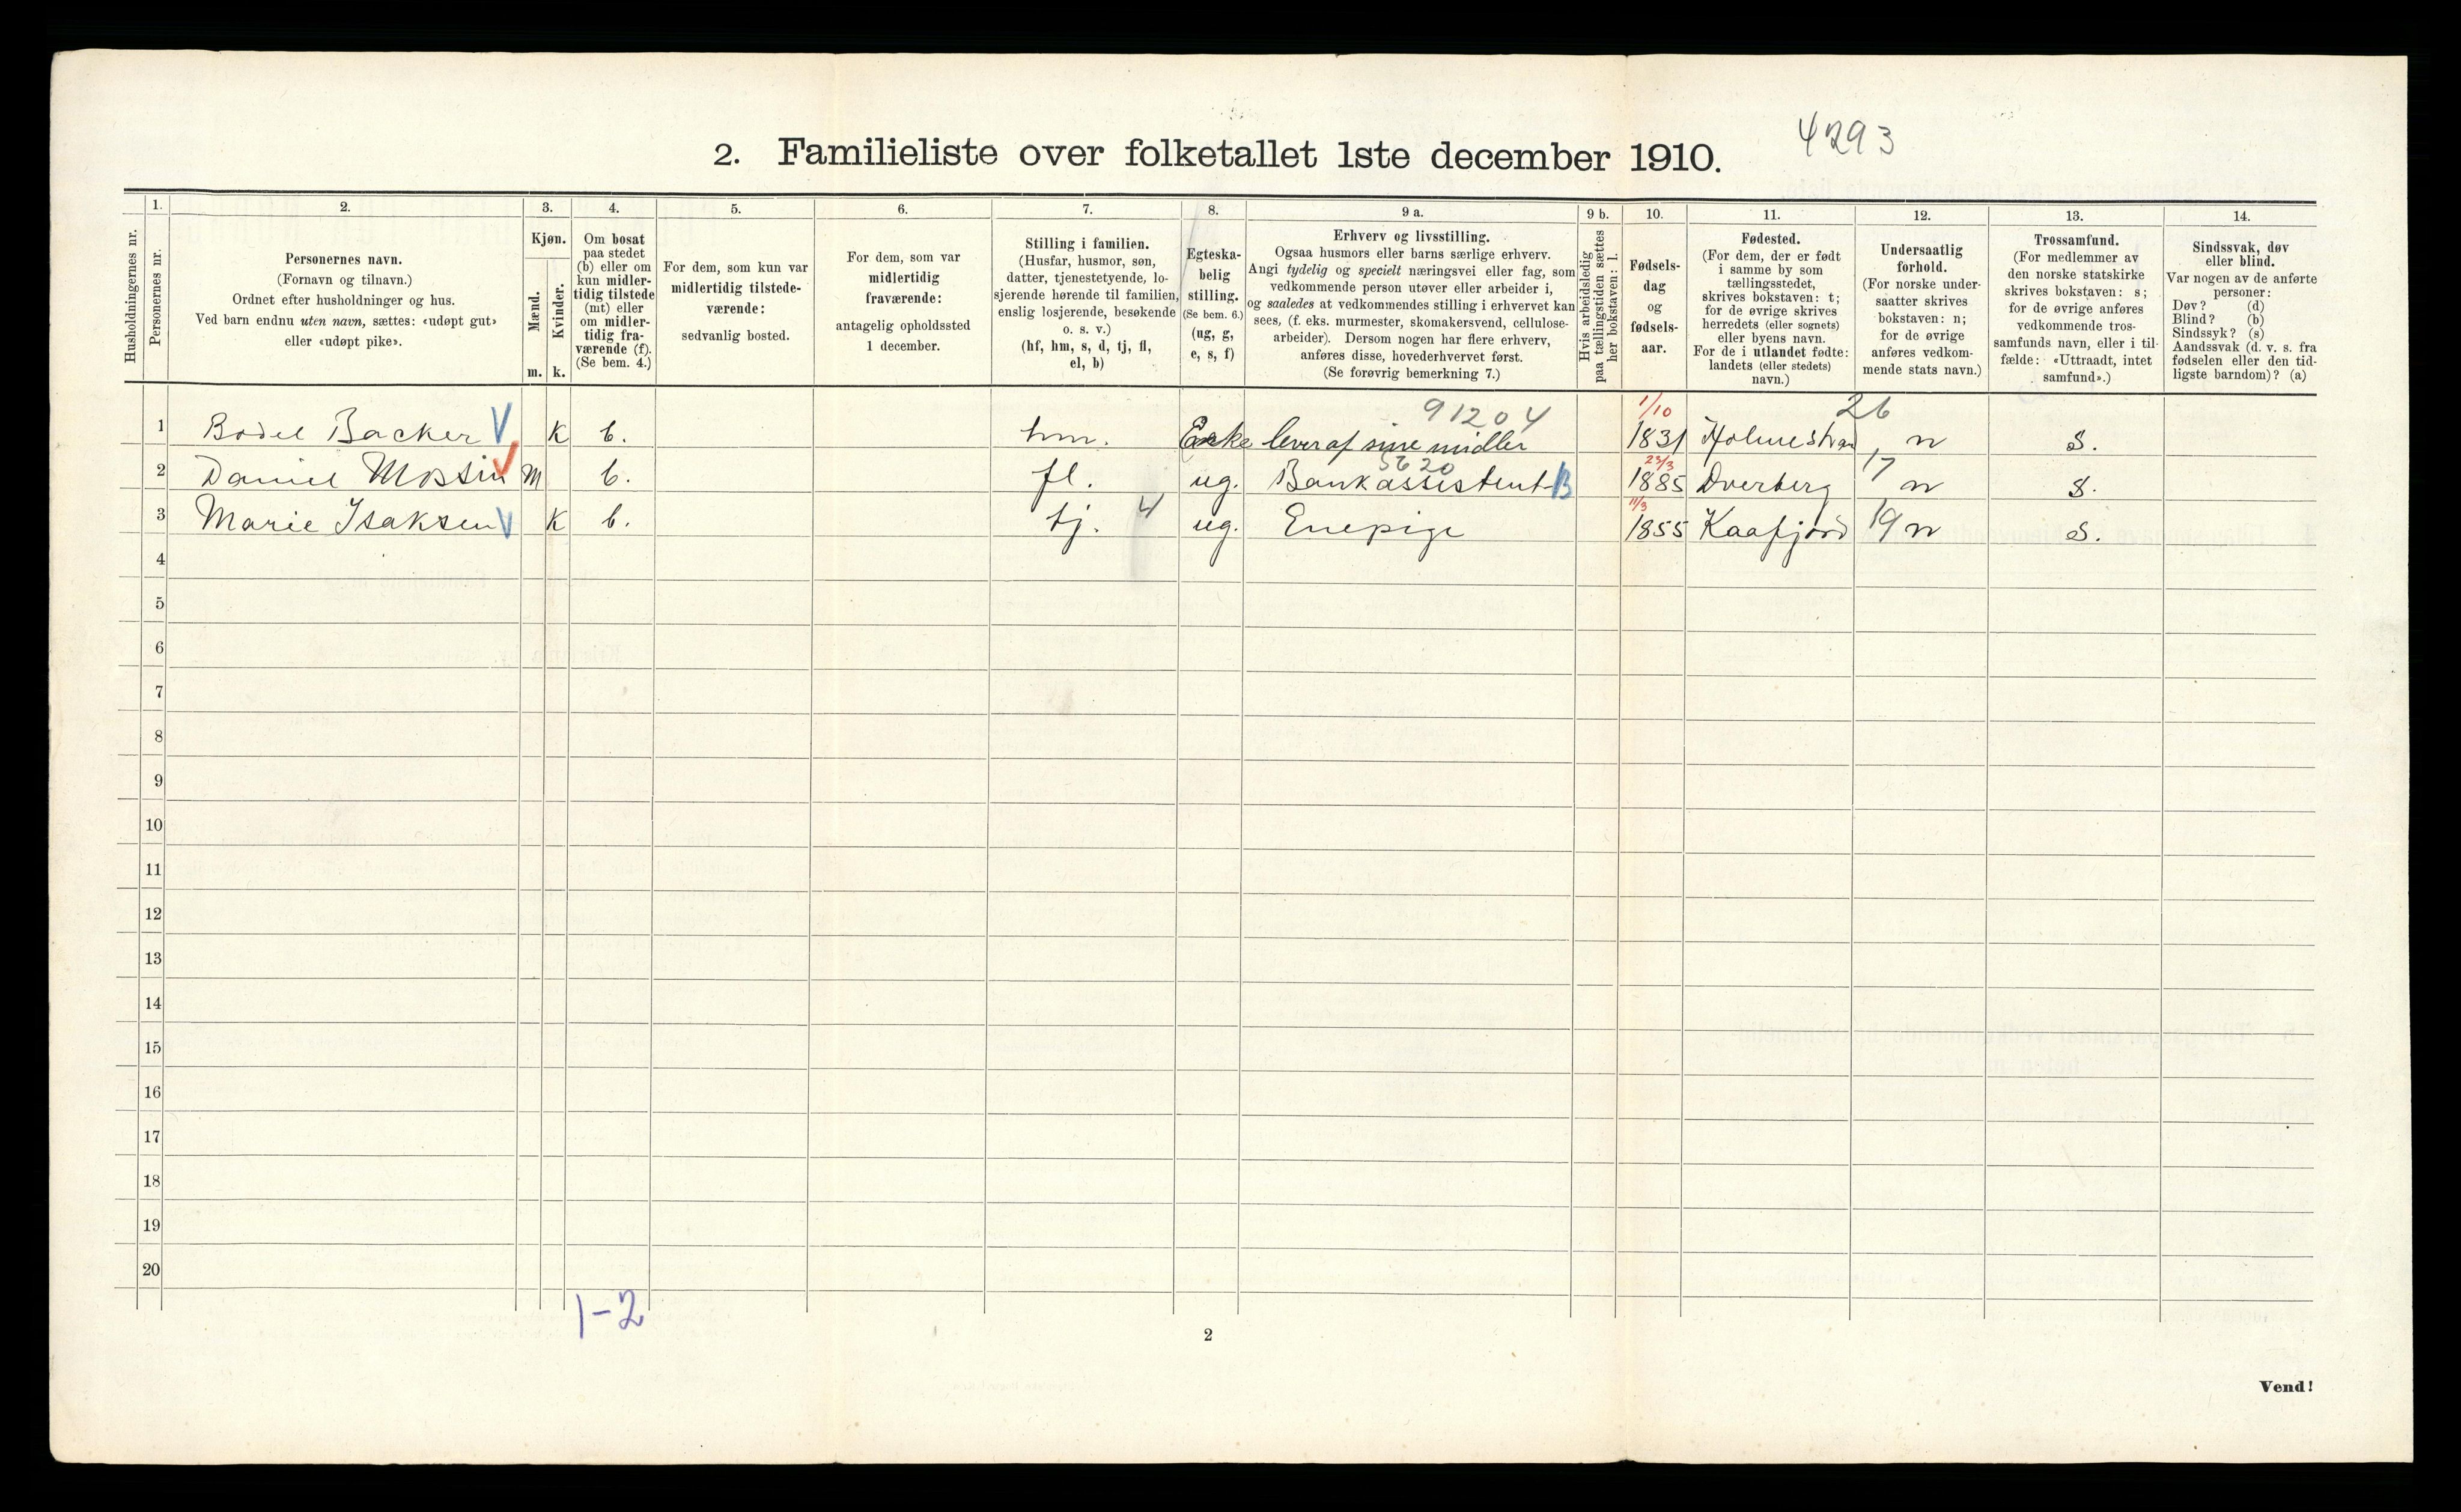 4293
2. Familieliste over folketallet 1ste december 1910.
Husholdningernes nr.
1.
Personernes nr.
2.
Personernes navn.
(Fornavn og tilnavn.)
Ordnet efter husholdninger og hus.
Ved barn endnu uten navn, sættes: «udøpt gut»
eller «udøpt pike».
3.
Kjøn.
Mænd.
m.
Kvinder.
k.
4.
Om bosat
paa stedet
(b) eller om
kun midler-
tidig tilstede
(mt) eller
om midler-
tidig fra-
værende (f).
(Se bem. 4.)
5.
For dem, som kun var
midlertidig tilstede-
værende:
sedvanlig bosted.
6.
For dem, som var
midlertidig
fraværende:
antagelig opholdssted
1 december.
7.
Stilling i familien.
(Husfar, husmor, søn,
datter, tjenestetyende, lo-
sjerende hørende til familien,
enslig losjerende, besøkende
o. s. v.)
(hf, hm, s, d, tj, fl,
el, b)
8.
Egteska-
belig
stilling.
(Se bem. 6.)
(ug, g,
e, s, f)
9 a.
Erhverv og livsstilling.
Ogsaa husmors eller barns særlige erhverv.
Angi tydelig og specielt næringsvei eller fag, som
vedkommende person utøver eller arbeider i,
og saaledes at vedkommendes stilling i erhvervet kan
sees, (f. eks. murmester, skomakersvend, cellulose-
arbeider). Dersom nogen har flere erhverv,
anføres disse, hovederhvervet først.
(Se forøvrig bemerkning 7.)
9 b.
Hvis arbeidsledig
paa tællingstiden sættes
her bokstaven: l.
10.
Fødsels-
dag
og
fødsels-
aar.
11.
Fødested.
(For dem, der er født
i samme by som
tællingsstedet,
skrives bokstaven: t;
for de øvrige skrives
herredets (eller sognets)
eller byens navn.
For de i utlandet fødte:
landets (eller stedets)
navn.)
12.
Undersaatlig
forhold.
(For norske under-
saatter skrives
bokstaven: n;
for de øvrige
anføres vedkom-
mende stats navn.)
13.
Trossamfund.
(For medlemmer av
den norske statskirke
skrives bokstaven: s;
for de øvrige anføres
vedkommende tros-
samfunds navn, eller i til-
fælde: «Uttraadt, intet
samfund».)
14.
Sindssvak, døv
eller blind.
Var nogen av de anførte
personer:
Døv? (d)
Blind? (b)
Sindssyk? (s)
Aandssvak (d. v. s. fra
fødselen eller den tid-
ligste barndom)? (a)
91204 1/10 26
1 Bodel Backer V K b. hm. Enke lever af sine midler 1831 Holmestran n s.
5620 23/3 17
2 Daniel Mossin M b. fl. ug. Bankassistent B 1885 Dverberg n s.
4 11/3 19
3 Marie Isaksen V K b. tj. ug. Enepige 1855 Kaafjord n s.
4
5
6
7
8
9
10
11
12
13
14
15
16
17
18
19
20
1-2
2
Vend!